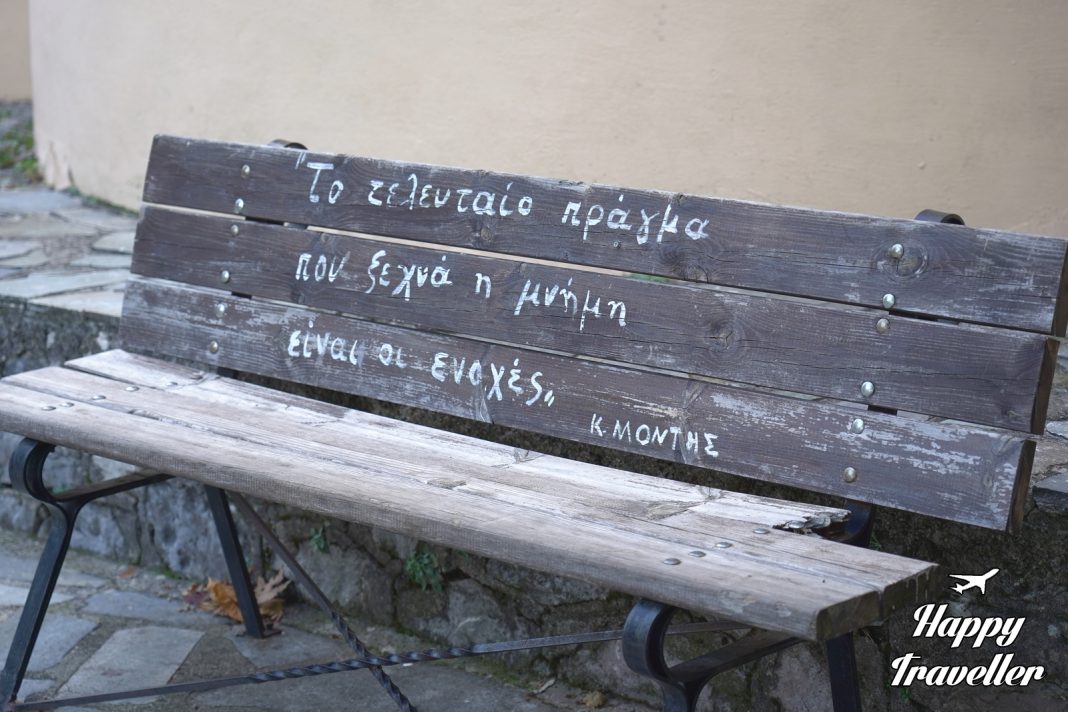 "Το τελευταίο πράγμα
που ξεχνά η μνήμη
είναι οι ενοχές"
Κ. ΜΟΝΤΗΣ
Happy
Traveller